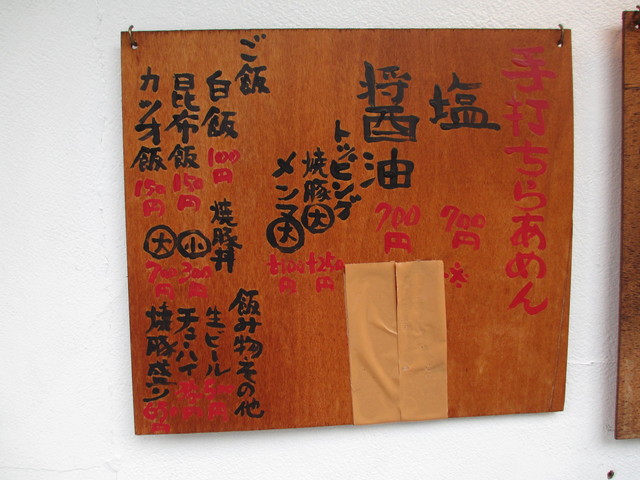 手打ちらあめん
塩
700円
※
醤油
700円
トッピング
焼豚大
+250円
メンマ大
+100円
ご飯
白飯
100円
昆布飯
150円
カツオ飯
150円
焼豚丼
小
300円
大
700円
飲み物その他
生ビール
500円
チューハイ
円
焼豚盛り
650円